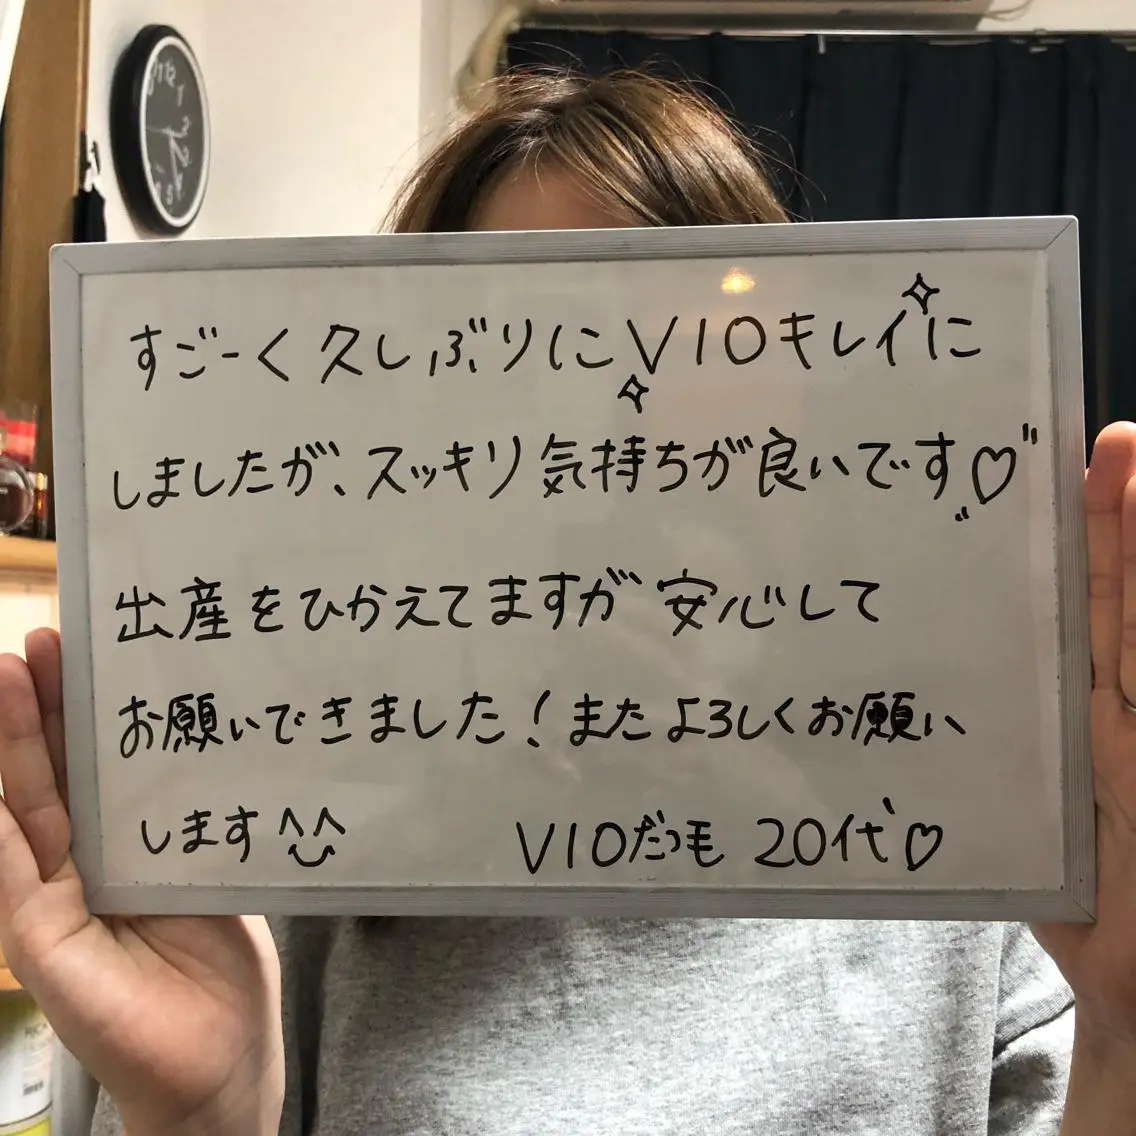 すごーく久しぶりにVIOキレイに
しましたが、スッキリ気持ちが良いです♡
出産をひかえてますが安心して
お願いできました！またよろしくお願い
します^^
VIOだつも 20代♡